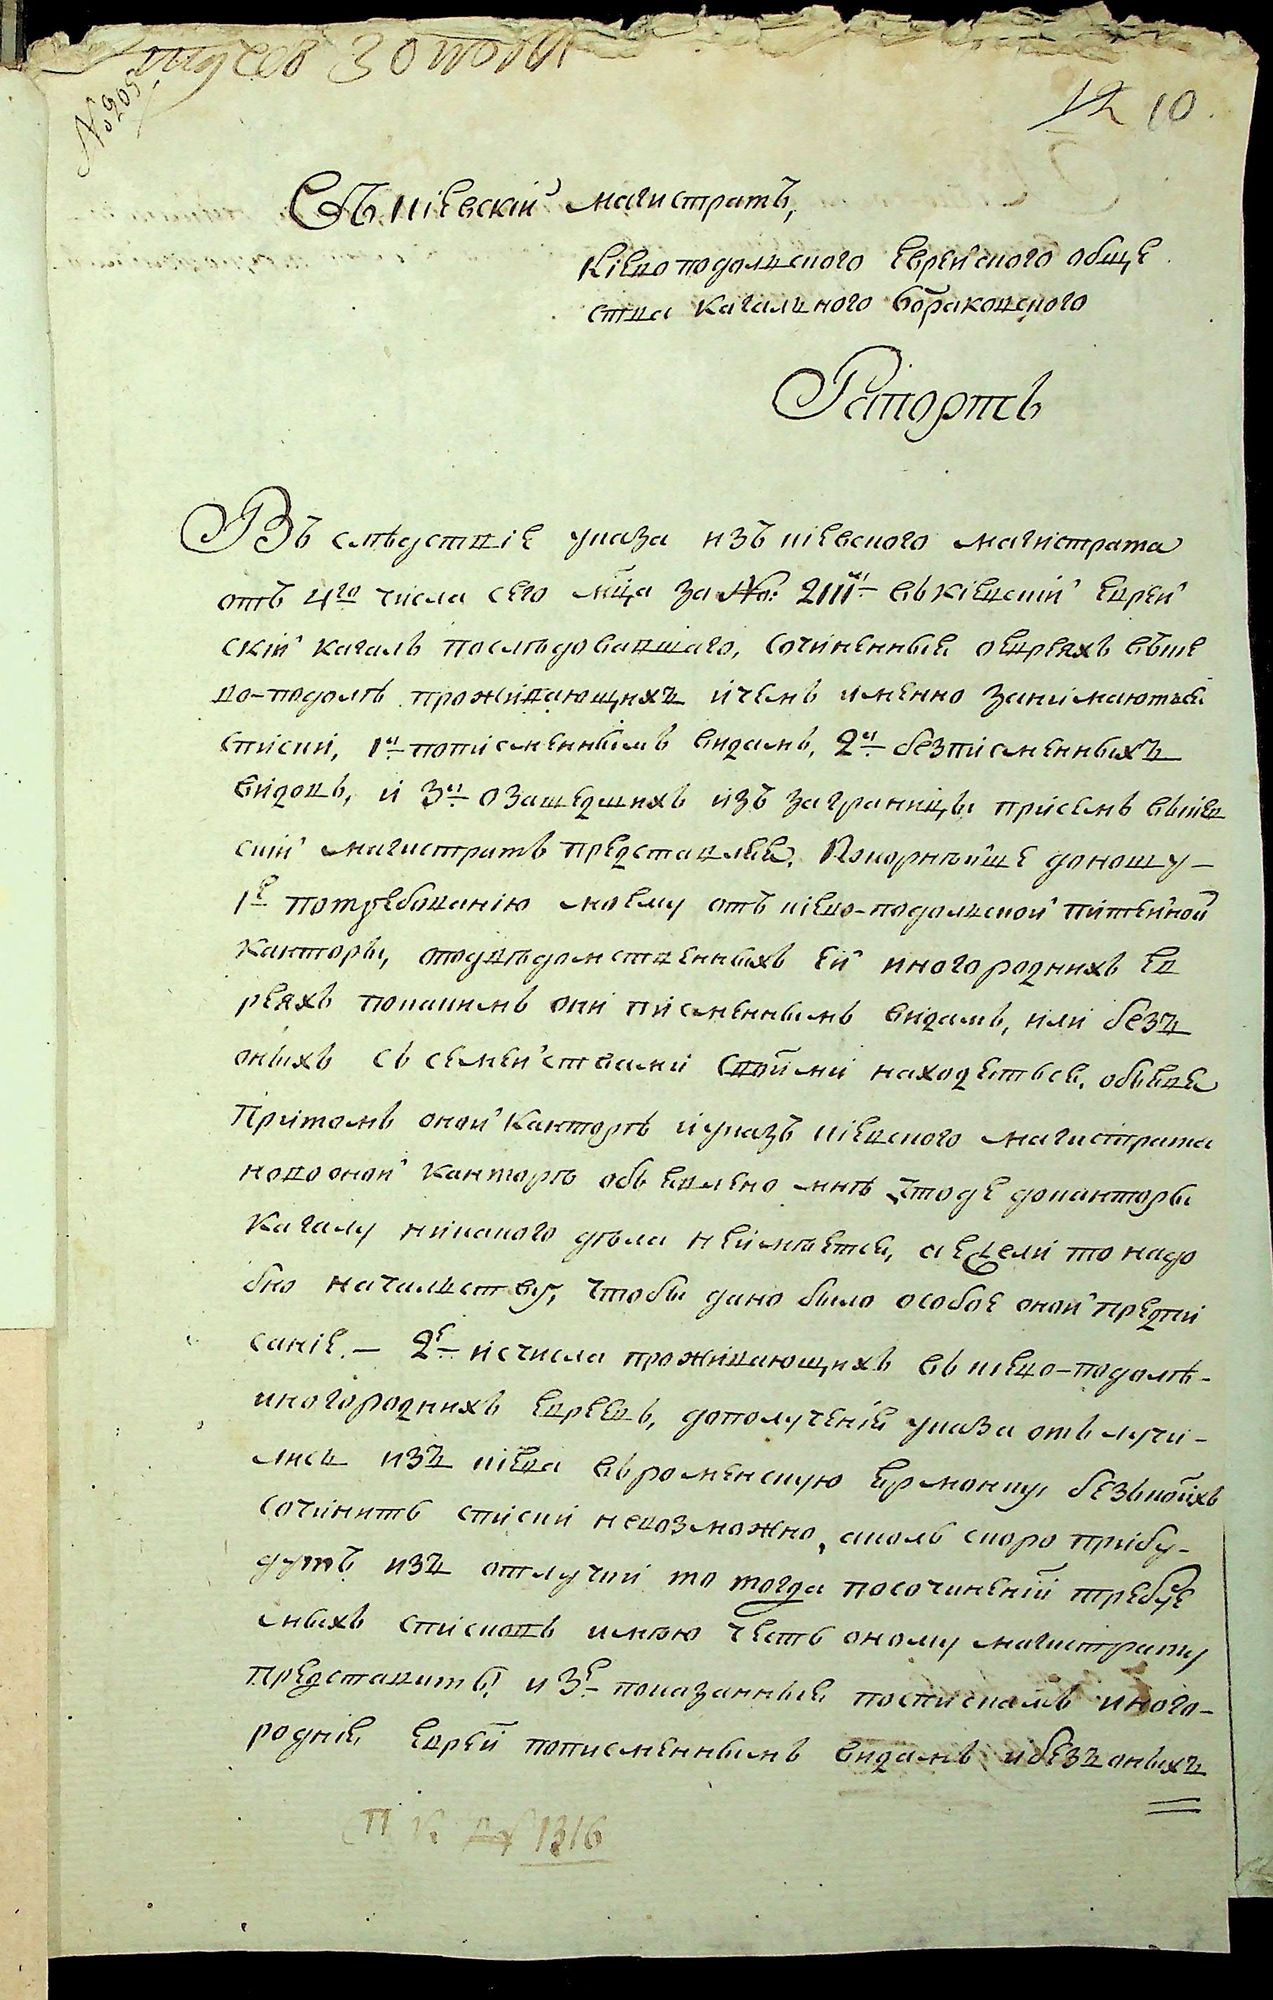 № 205
12 10
Въ Кіевскій магистратъ,
Кіевоподольского Еврейского обще
ства Кагального Бораковского
Рапортъ
Въ слѣдствіе указа изъ кіевского магистрата
отъ 4го числа сего мца за №: 2111м въ Кіевскій Еврей
скій кагалъ послѣдовавшаго, сочиненныя оевреяхъ вкіе
во-подолѣ проживающихъ ичемъ именно занимаються
списки, 1й пописменнымъ видамъ, 2й безписменныхъ
видовъ, и 3й озашедшихъ изъ заграницы присемъ вкіев
скій магистратъ представляя. Покорнѣйше доношу —
1е потребованію моему отъ кіево-подольской питейной
канторы, оподвѣдомственныхъ ей иногородныхъ ев
реяхъ покакимъ они писменнымъ видамъ, или безъ
оныхъ съ семействами своими находятся, объявя
притомъ оной канторѣ иуказъ кіевского магистрата
новооной канторѣ объявлено мнѣ чтоде доканторы
кагалу никакого дѣла неимѣется, аежели то надо
бно начальству, чтобы дано было особое оной предпи
саніе. — 2е исчисла проживающихъ въ кіево-подолѣ —
иногородныхъ евреевъ, дополученія указа отлучи —
лись изъ кіева вроменскую ярмонку, безъкоихъ
сочинить списки невозможно, аколь скоро прибу —
дутъ изъ отлучки то тогда посочиненіи требуе
мыхъ списковъ имѣю честь оному магистрату
представить! и 3е показанныя поспискамъ иного —
родніе евреи пописменнымъ видамъ ибезъоныхъ
1316